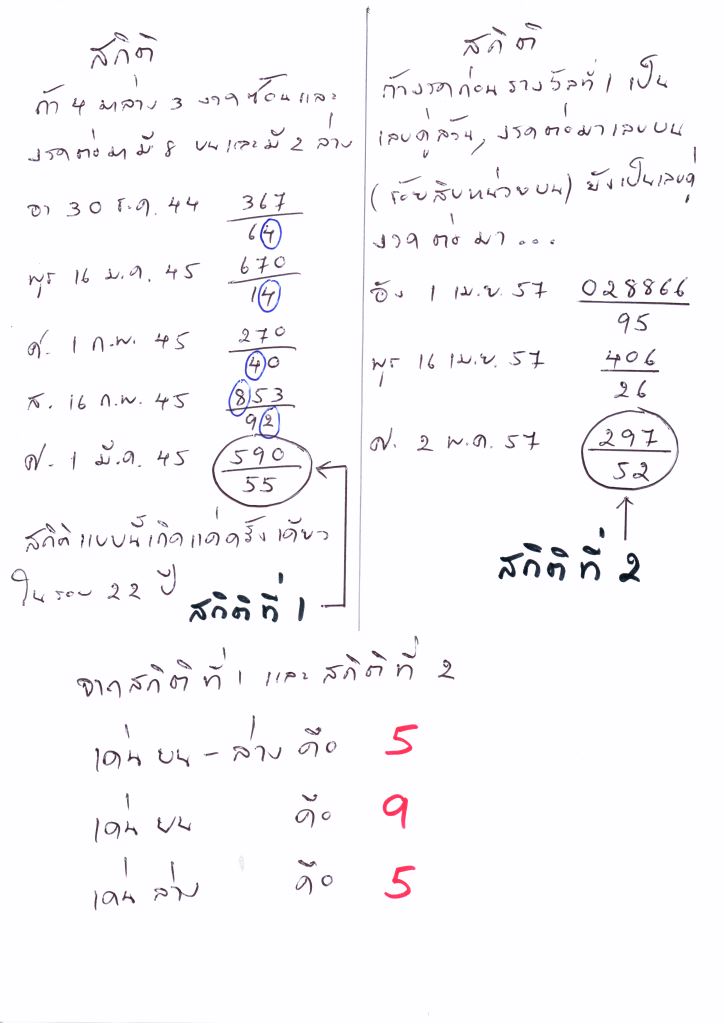 สถิติ
ถ้า 4 มาล่าง 3 งวดซ้อนและ
งวดต่อมามี 8 บนและมี 2 ล่าง
อา 30 ธ.ค. 44 367
64
พุธ 16 ม.ค. 45 670
14
ศ. 1 ก.พ. 45 270
40
ส. 16 ก.พ. 45 853
92
ศ. 1 มี.ค. 45 590
55
สถิติแบบนี้เกิดแค่ครั้งเดียว
ในรอบ 22 ปี
สถิติที่ 1
สถิติ
ถ้างวดก่อนรางวัลที่ 1 เป็น
เลขคู่ล้วน, งวดต่อมาเลขบน
(ร้อยสิบหน่วยบน) ยังเป็นเลขคู่
งวดต่อมา...
อัง 1 เม.ย. 57 028866
95
พุธ 16 เม.ย. 57 406
26
ศ. 2 พ.ค. 57 297
52
สถิติที่ 2
จากสถิติที่ 1 และสถิติที่ 2
เด่น บน - ล่าง คือ 5
เด่น บน คือ 9
เด่น ล่าง คือ 5